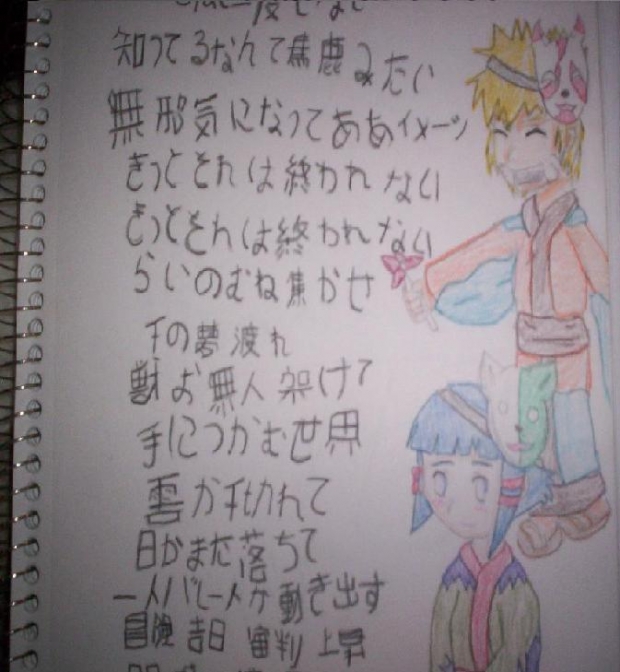 知ってるなんて馬鹿みたい
無邪気になってああイメージ
きっとそれは終われない
きっとそれは終われない
らいのむね焦かせ
の夢渡れ
獣お無人架け
手につかむ世界
雲が切れて
日がまた落ちて
一人バレ一人が動き出す
冒険吉日審判上昇